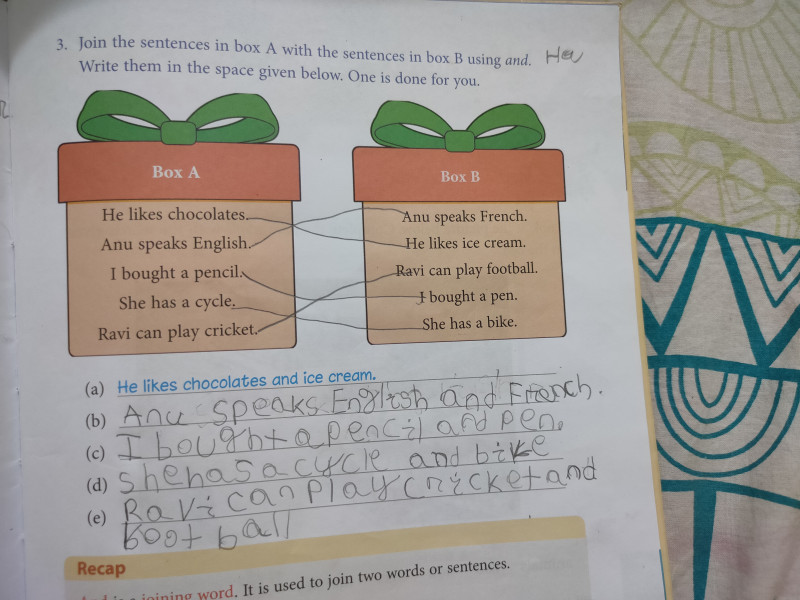 3. Join the sentences in box A with the sentences in box B using and.
Write them in the space given below. One is done for you.
Box A
He likes chocolates.
Anu speaks English.
I bought a pencil.
She has a cycle.
Ravi can play cricket.
Box B
Anu speaks French.
He likes ice cream.
Ravi can play football.
I bought a pen.
She has a bike.
(a) He likes chocolates and ice cream.
(b) Anu speaks English and French.
(c) I bought a pencil and pen.
(d) She has a cycle and bike
(e) Ravi can play cricket and
foot ball
Recap
joining word. It is used to join two words or sentences.